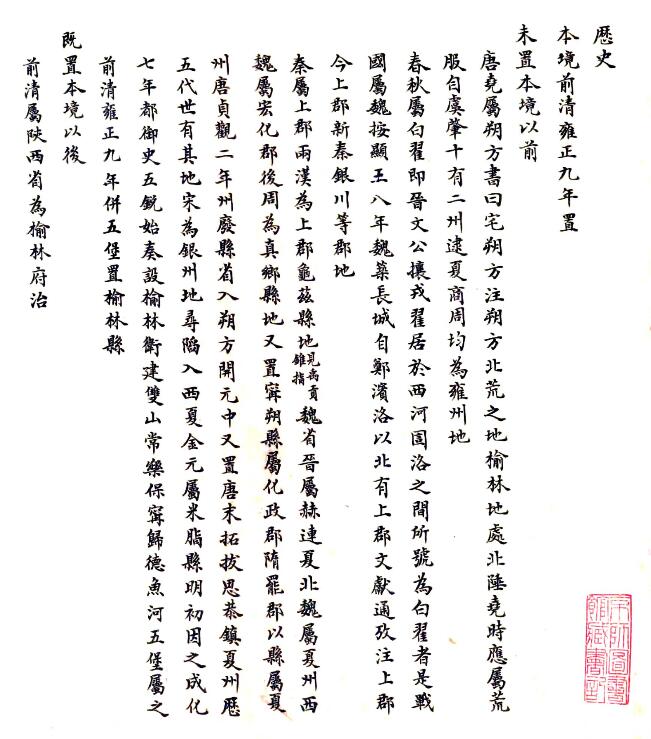 歷史
本境前清雍正九年置
未置本境以前
唐堯屬朔方書曰宅朔方注朔方北荒之地榆林地處北陲堯時應屬荒
服自虞肇十有二州逮夏商周均為雍州地
春秋屬白翟即晉文公攘戎翟居於西河圁洛之間所號為白翟者是戰
國屬魏按顯王八年魏築長城自鄭濱洛以北有上郡文獻通攷注上郡
今上郡新秦銀川等郡地
秦屬上郡兩漢為上郡龜茲縣地見禹貢錐指魏省晉屬赫連夏北魏屬夏州西
魏屬宏化郡後周為真鄉縣地又置寧朔縣屬化政郡隋罷郡以縣屬夏
州唐貞觀二年州廢縣省入朔方開元中又置唐末拓拔思恭鎮夏州歷
五代世有其地宋為銀州地尋陷入西夏金元屬米脂縣明初因之成化
七年都御史王銳始奏設榆林衛建雙山常樂保寧歸德魚河五堡屬之
前清雍正九年併五堡置榆林縣
既置本境以後
前清屬陝西省為榆林府治